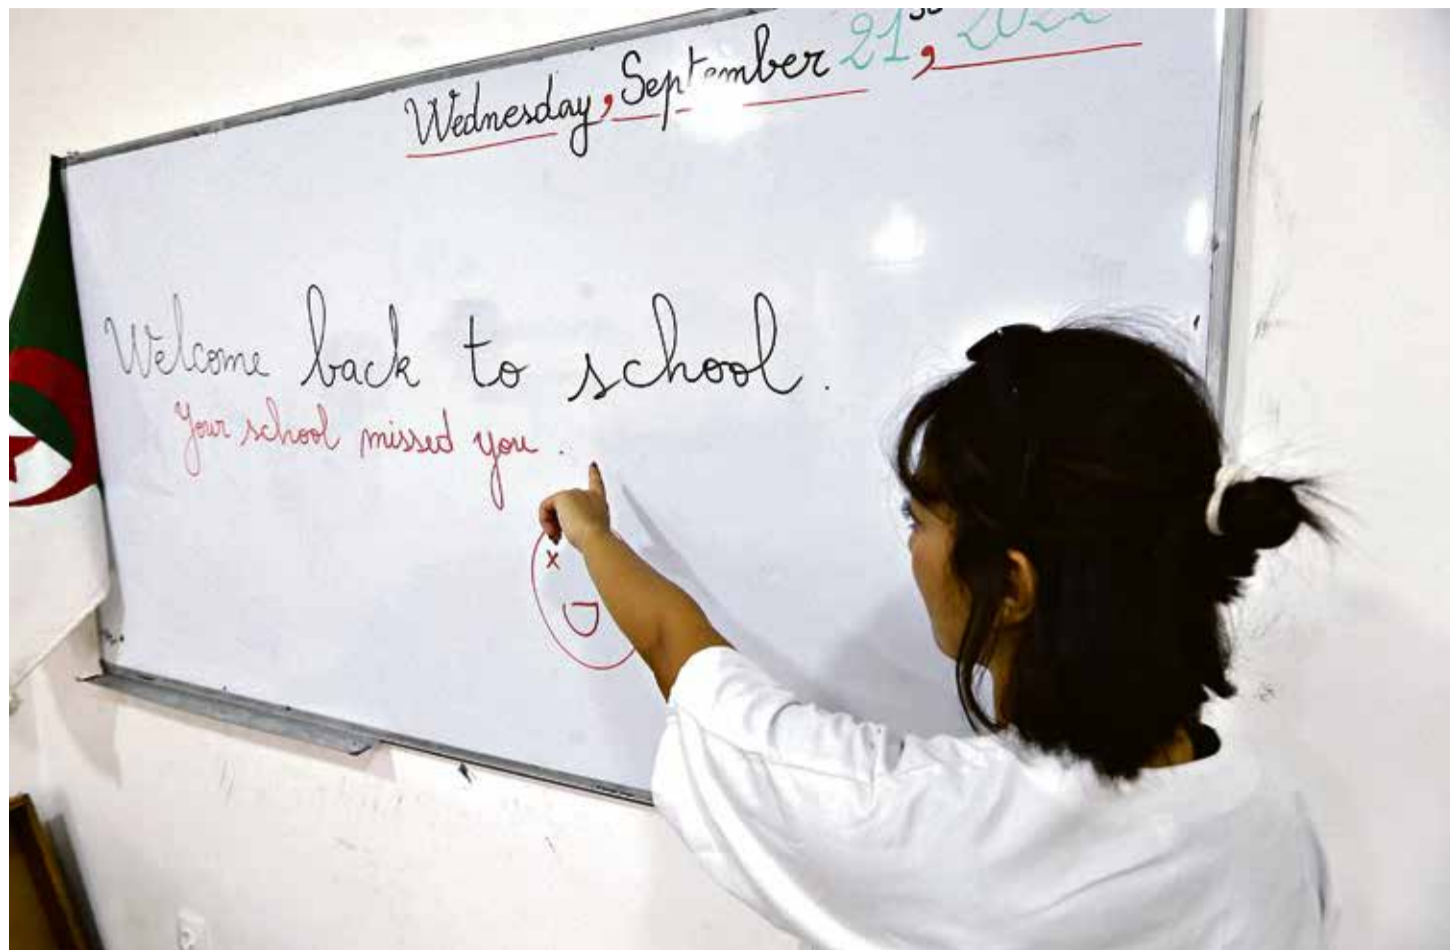 Wednesday, September 21st, 2022
Welcome back to school.
Your school missed you.